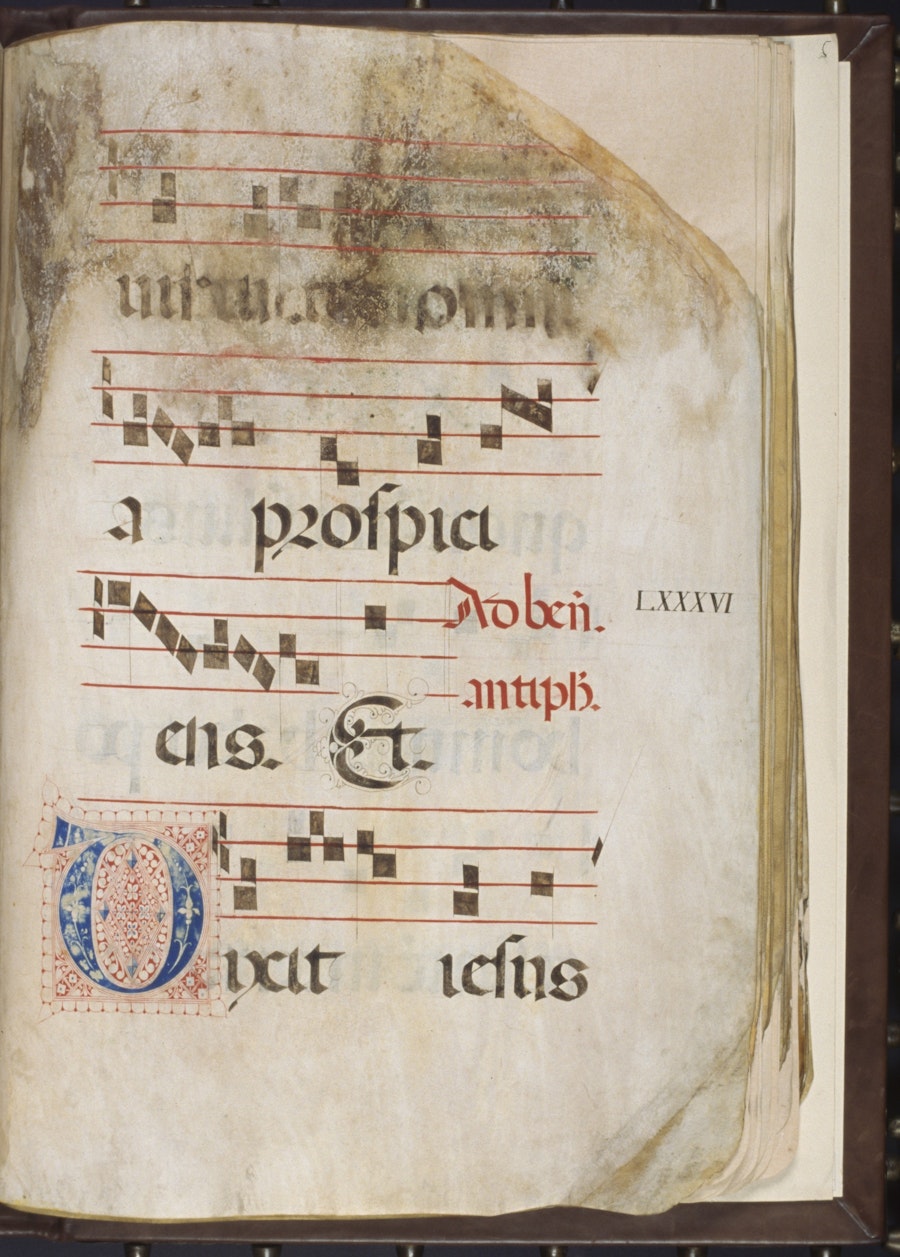 5
a prospici
Ad ben̄. LXXXVI
antiph̄.
ens. Et.
Dixit iesus